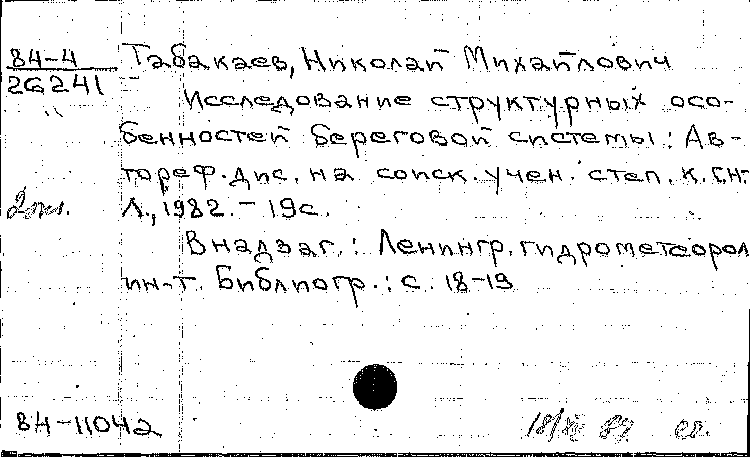 84-4 Табакаев, Николай Михайлович
26241
Исследование структурных осо-
бенностей береговой системы: Ав-
тореф. дис. на соиск. учен. степ. к.г.н.
2 экз. Л., 1982. - 19с.
В надзаг.: Ленингр. гидрометеорол
ин-т. Библиогр.: с. 18-19
84-11042